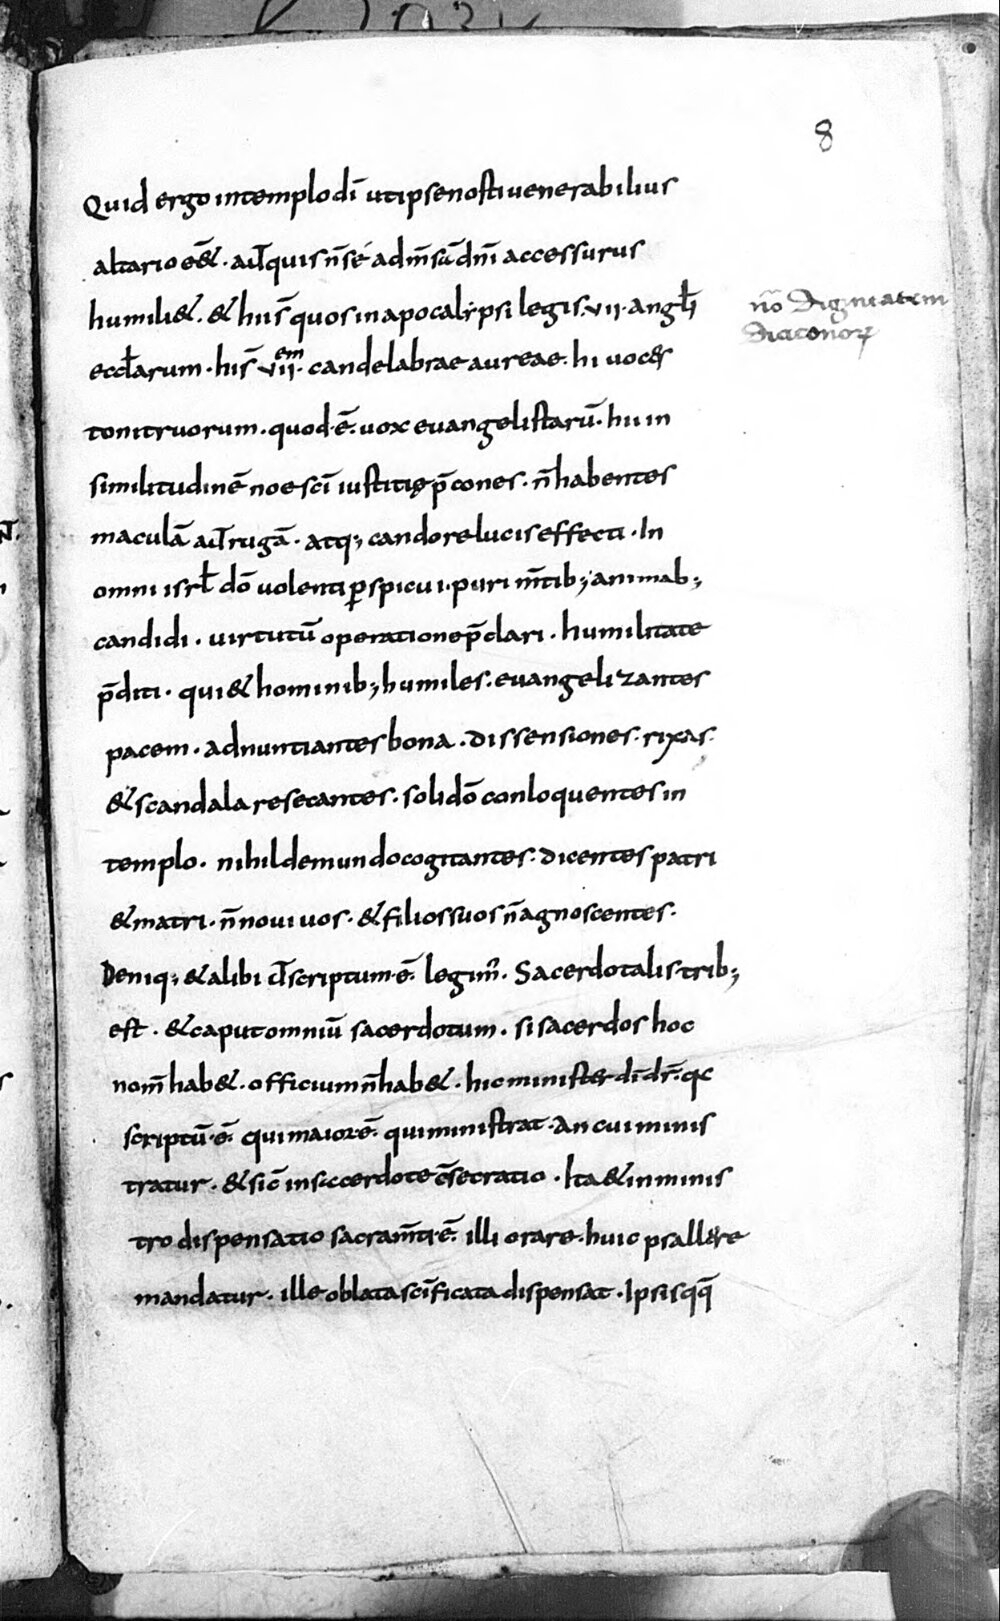 8
Quid ergo in templo dī ut ipse nosti venerabilius
altario eēt. aut̄ quis n̄ se ad m̄sā dn̄i accessurus
humiliet. et hii s̄ quos in apocalypsi legis. vii. angl̄i
eccl̄arum. hi s̄ vii.em candelabrae aureae. hi voces
tonitruorum. quod ē. vox evangelistarū. hii in
similitudinē noe sc̄i iustitię p̄cones. n̄ habentes
maculā aut̄ rugā. atq; candore lucis effecti. In
omni isrl̄ dō volenti ꝑspicui. puri m̄tib; animab;
candidi. virtutū operatione p̄clari. humilitate
p̄diti. qui et hominib; humiles. evangelizantes
pacem. adnuntiantes bona. dissensiones. rixas.
et scandala resecantes. soli dō conloquentes in
templo. nihil de mundo cogitantes. dicentes patri
et matri. n̄ novi vos. et filios suos n̄ agnoscentes.
Deniq; et alibi scriptum ē. legim̄. Sacerdotalis trib;
est. et caput omniū sacerdotum. si sacerdos hoc
nom̄ habet. officium n̄ habet. hic minister dī dr̄. qc
scriptū ē. qui maior ē. qui ministrat. An cui minis
tratur. et sic̄ in sacerdote c̄secratio. Ita et in minis
tro dispensatio sacram̄ti ē. illi orare. huic psallere
mandatur. ille oblata sc̄ificata dispensat. Ipsis qq̄
nō Dignitatem
Diaconoꝝ